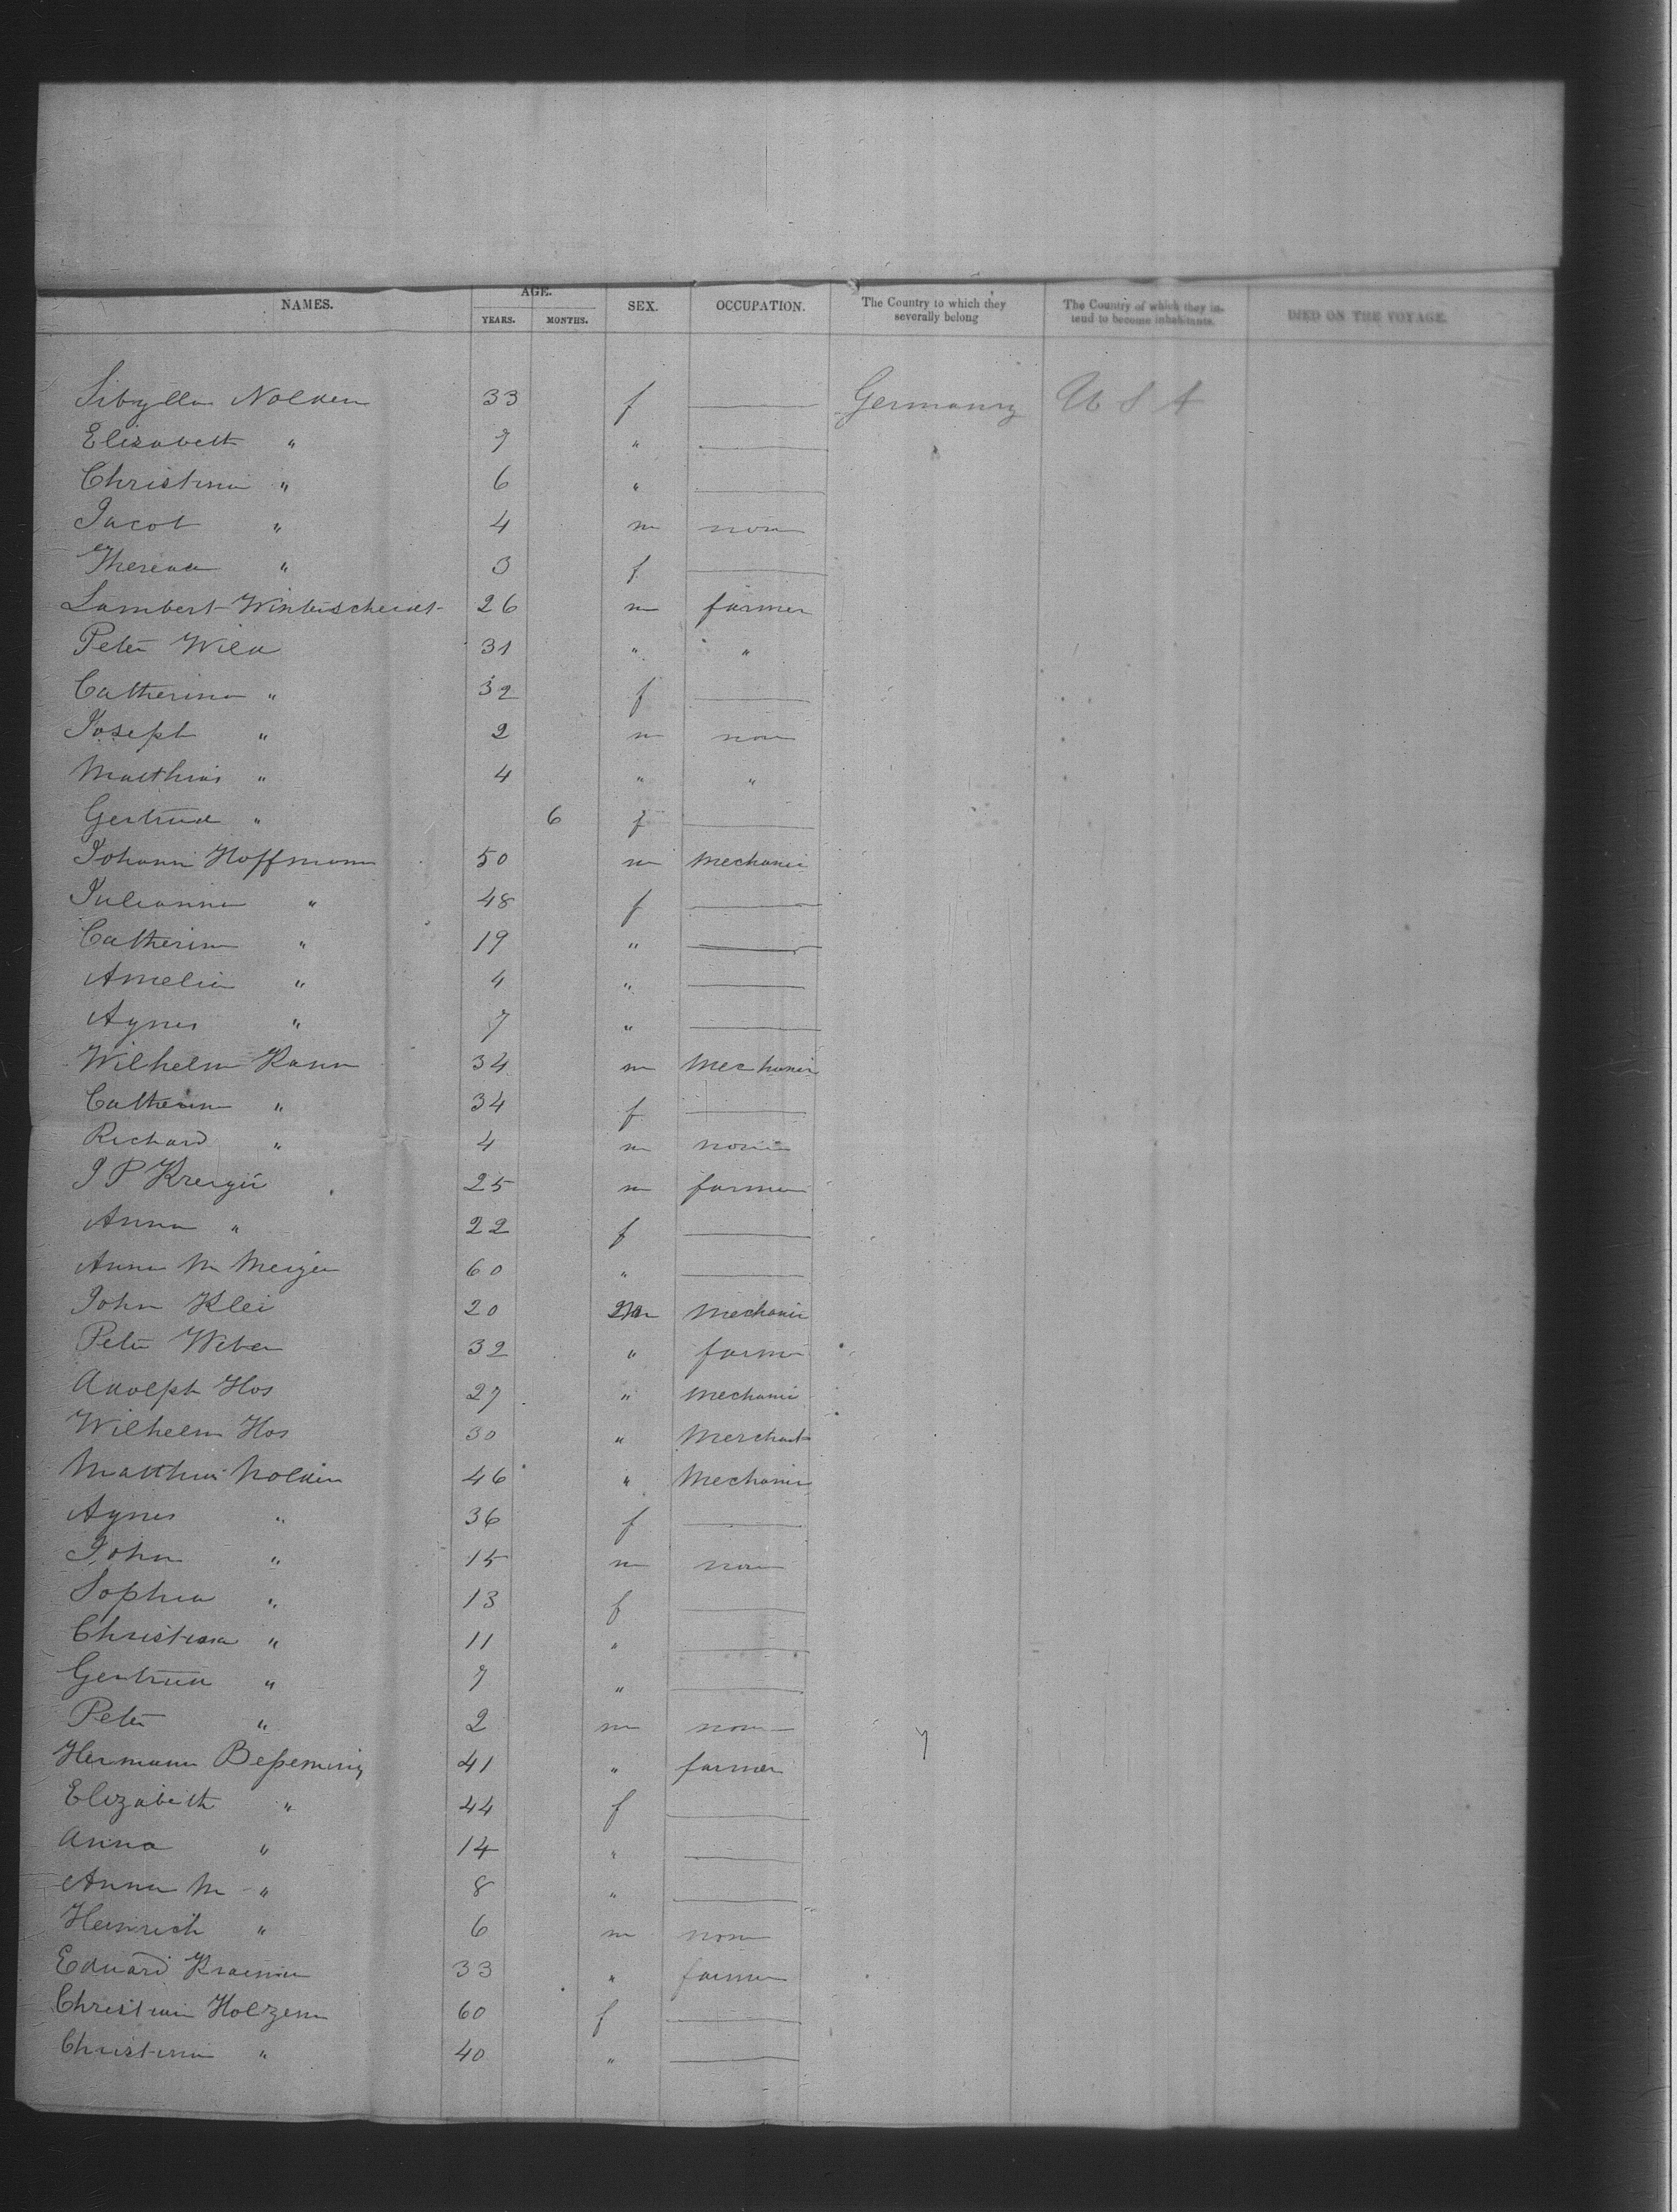 NAMES. AGE. SEX. OCCUPATION. The Country to which they severally belong The Country of which they intend to become inhabitants. DIED ON THE VOYAGE.
YEARS. MONTHS.
Sibylla Nolden 33 f — Germany U S A
Elizabeth " 7 " —
Christina " 6 " —
Jacob " 4 m non
Theresa " 3 f —
Lambert Winterscheidt 26 m farmer
Peter Wild 31 " "
Catherina " 32 f —
Joseph " 2 m non
Matthias " 4 " "
Gertrud " 6 f —
Johann Hoffmann 50 m Mechanic
Julianna " 48 f —
Catherina " 19 " —
Amelia " 4 " —
Agnes " 7 " —
Wilhelm Kann 34 m Mechanic
Catherina " 34 f —
Richard " 4 m non
J P Kreyer 25 m farmer
Anna " 22 f —
Anna M Meiyer 60 " —
John Klei 20 m Mechanic
Peter Weber 32 " farmer
Adolph Hos 27 " Mechanic
Wilhelm Hos 30 " Merchant
Matthias Nolden 46 " Mechanic
Agnes " 36 f —
John " 15 m non
Sophia " 13 f —
Christina " 11 " —
Gertrud " 7 " —
Peter " 2 m non
Hermann 41 " farmer
Elizabeth " 44 f —
Anna " 14 " —
Anna M " 8 " —
Heinrich " 6 m non
Eduard Kraemer 33 " farmer
Christian Holzem 60 f —
Christina " 40 " —